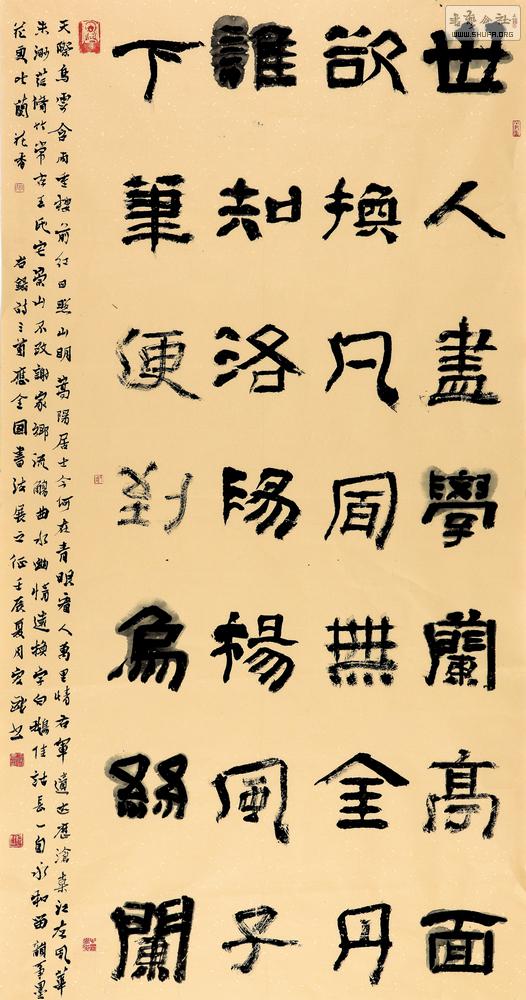 世人盡學蘭亭面
欲換凡骨無金丹
誰知洛陽楊風子
下筆便到烏絲闌
天際烏雲含雨重樓前紅日照山明嵩陽居士今何在青眼看人萬里情右軍適歷滄桑江左風華
竹常在王氏宅山不改謝家鄉流觴曲水幽情遠換字白鵝佳話長一自永和留禊事墨
花更比蘭花香 右錄詩三首應全國書法展之征壬辰夏月
WWW.SHUFA.ORG